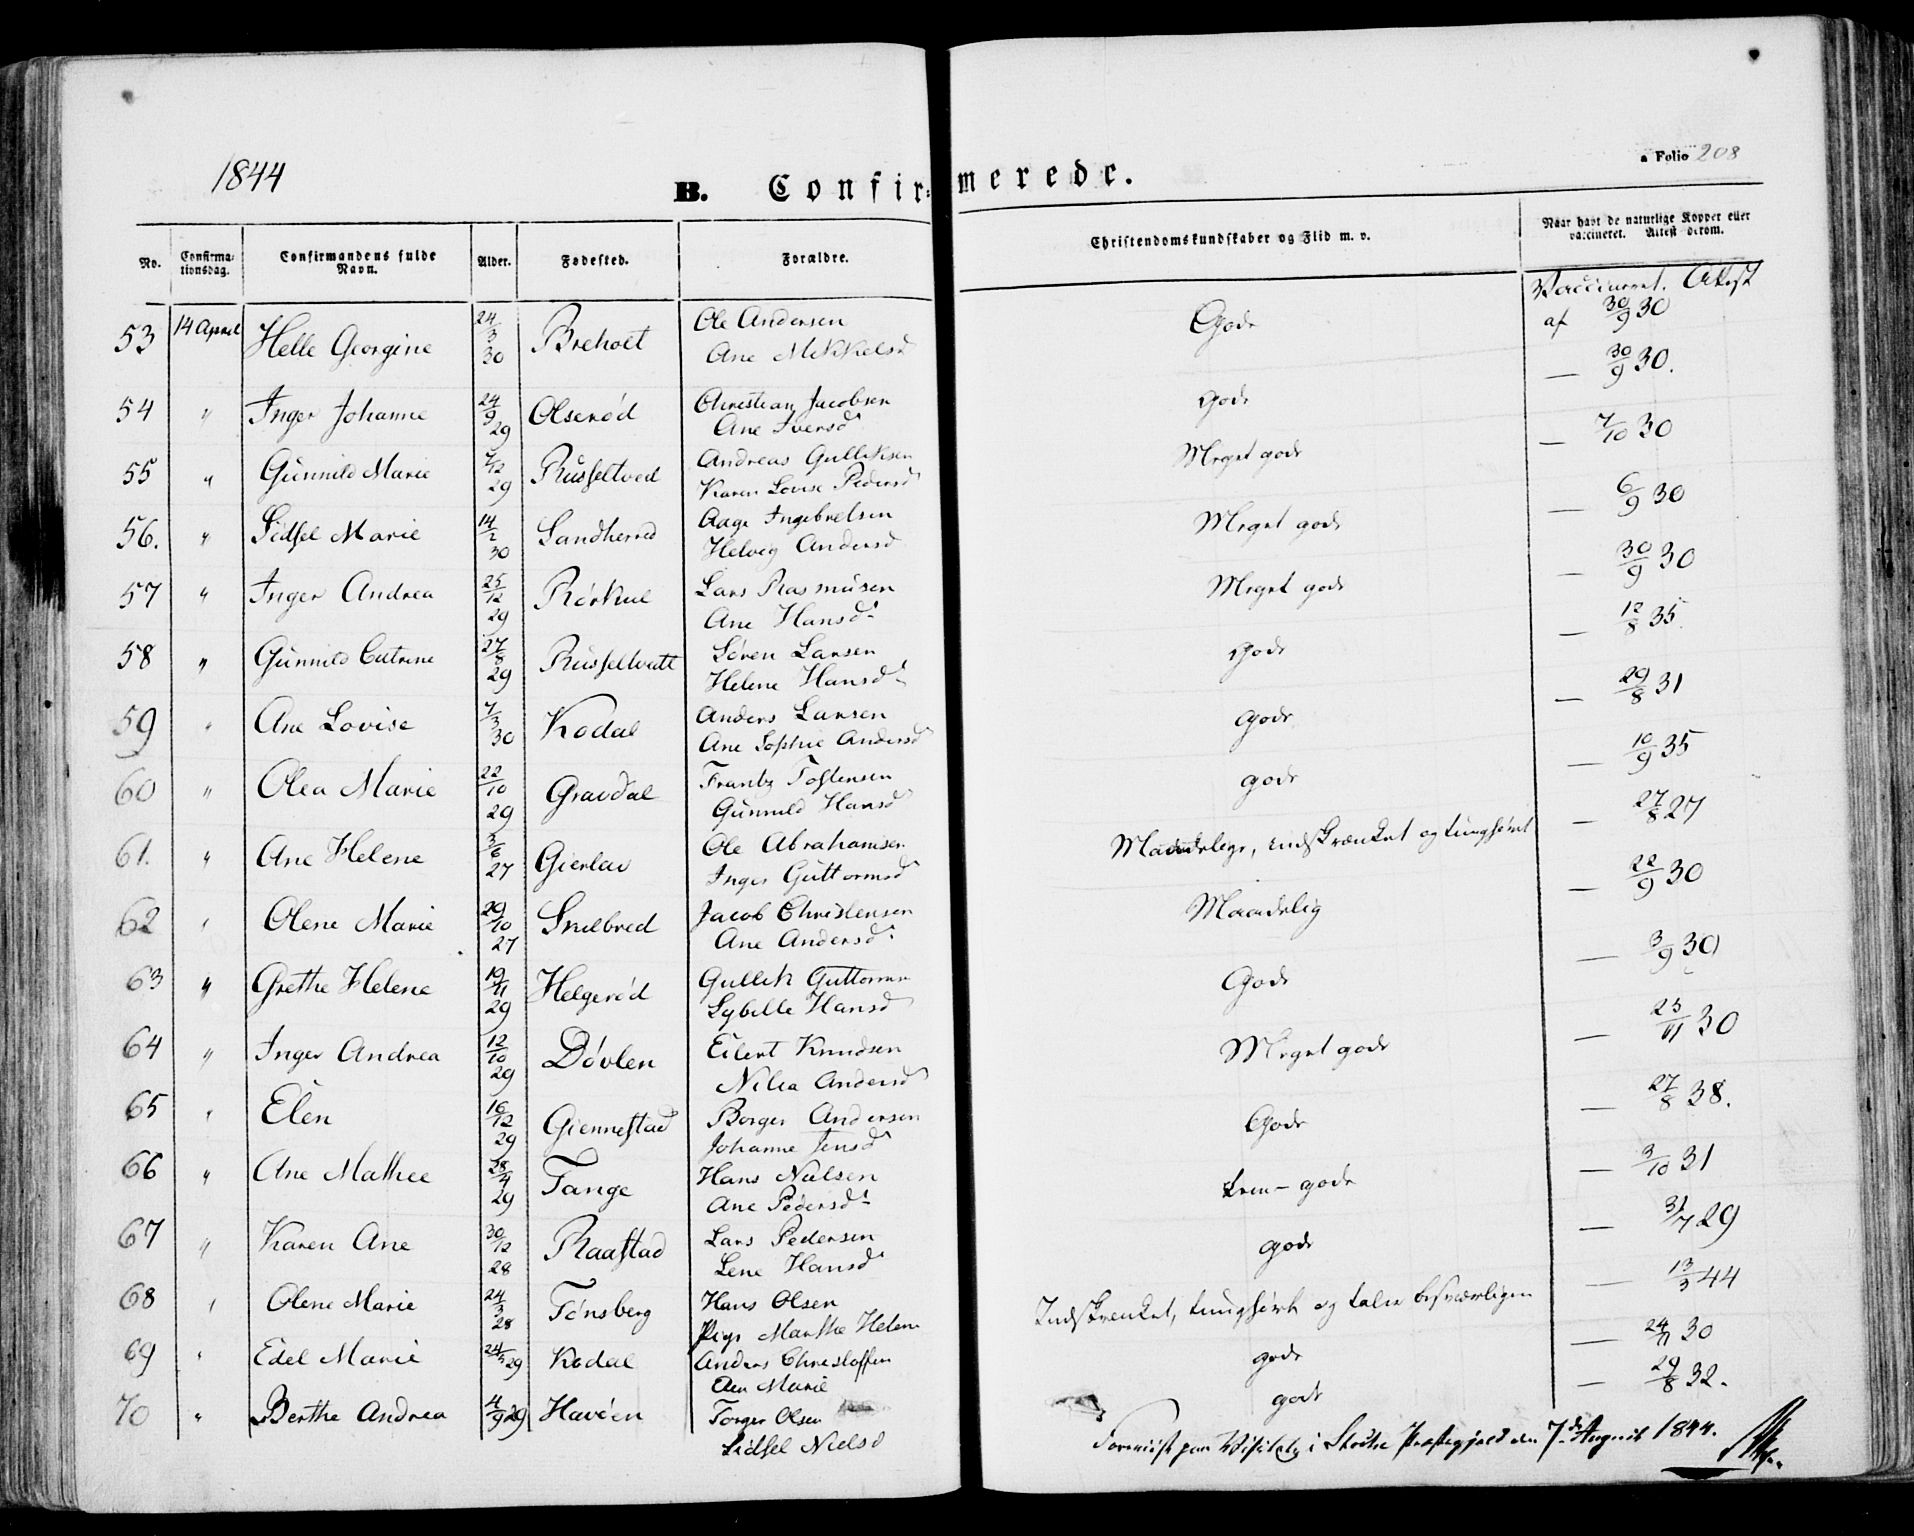 1844
a Folio 208
B. Confirmerede.
No. Confirmationsdag. Confirmandens fulde Navn. Alder. Fødested. Forældre. Christendomskundskaber og Flid m. v. Naar havt de naturlige Kopper eller vaccineret. Attest derom.
Vaccineret. Attest
53 14 April Helle Georgine 24/3 30 Breholt Ole Andersen Gode af 30/9 30
Ane Mikkelsd
54 " Inger Johanne 24/9 29 Olserød Christian Jacobsen gode — 30/9 30.
Ane Iversd
55 " Gunnild Marie 29 Russeltved Andreas Gulliksen Meget gode — 7/10 30
Karen Lovise Pedersd
56. " Sidsel Marie 14/2 30 Sandherred Aage Ingebretsen Meget gode — 6/9 30
Helvig Andersd
57 " Inger Andrea 25/12 29 Rørkul Lars Rasmusen Meget gode — 30/9 30
Ane Hansd
58 " Gunnild Catrine 27/8 29 Russeltvedt Søren Larsen gode — 12/8 35.
Helene Hansd
59 " Ane Lovise 7/3 30 Kodal Anders Larsen gode — 29/8 31
Ane Sophie Andersd
60 " Olea Marie 22/10 29 Gravdal Frantz Tostensen gode — 10/9 35
Gunnild Hansd
61. " Ane Helene 3/6 27 Gierlav Ole Abrahamsen Maadelige, indskrænket og tunghørt — 27/8 27
Inger Guttormsd
62 " Olene Marie 29/10 27 Snilbred Jacob Christensen Maadelig — 22/9 30
Ane Andersd
63 " Grethe Helene 19/11 29 Helgerød Gullik Guttormsen Gode — 3/9 30
Sybille Hansd
64 " Inger Andrea 12/10 29 Døvlen Eilert Knudsen Meget gode — 23/11 30
Nilia Andersd
65 " Elen 16/12 29 Giennestad Borger Andersen Gode — 27/8 38.
Johanne Jensd
66 " Ane Mathea 28/4 29 Tange Hans Nielsen gode — 3/10 31
Ane Pedersd
67 " Karen Ane 30/12 28 Raastad Lars Pedersen gode — 3/7 29
Lene Hansd
68 " Olene Marie 24/3 28 Tønsberg Hans Olsen Indskrænket, tunghørt og taler besværligen — 13/3 44
Pige Marthe Helene
69 " Edel Marie 29 Kodal Anders Christoffersen gode — 24/11 30
Marie
70 " Berthe Andrea 4/9 29 Havóen Torger Olsen godt — 29/8 32.
Sidsel Nielsd
Foreviist paa Visitats i Stokke Præstegjeld den 7de August 1844.